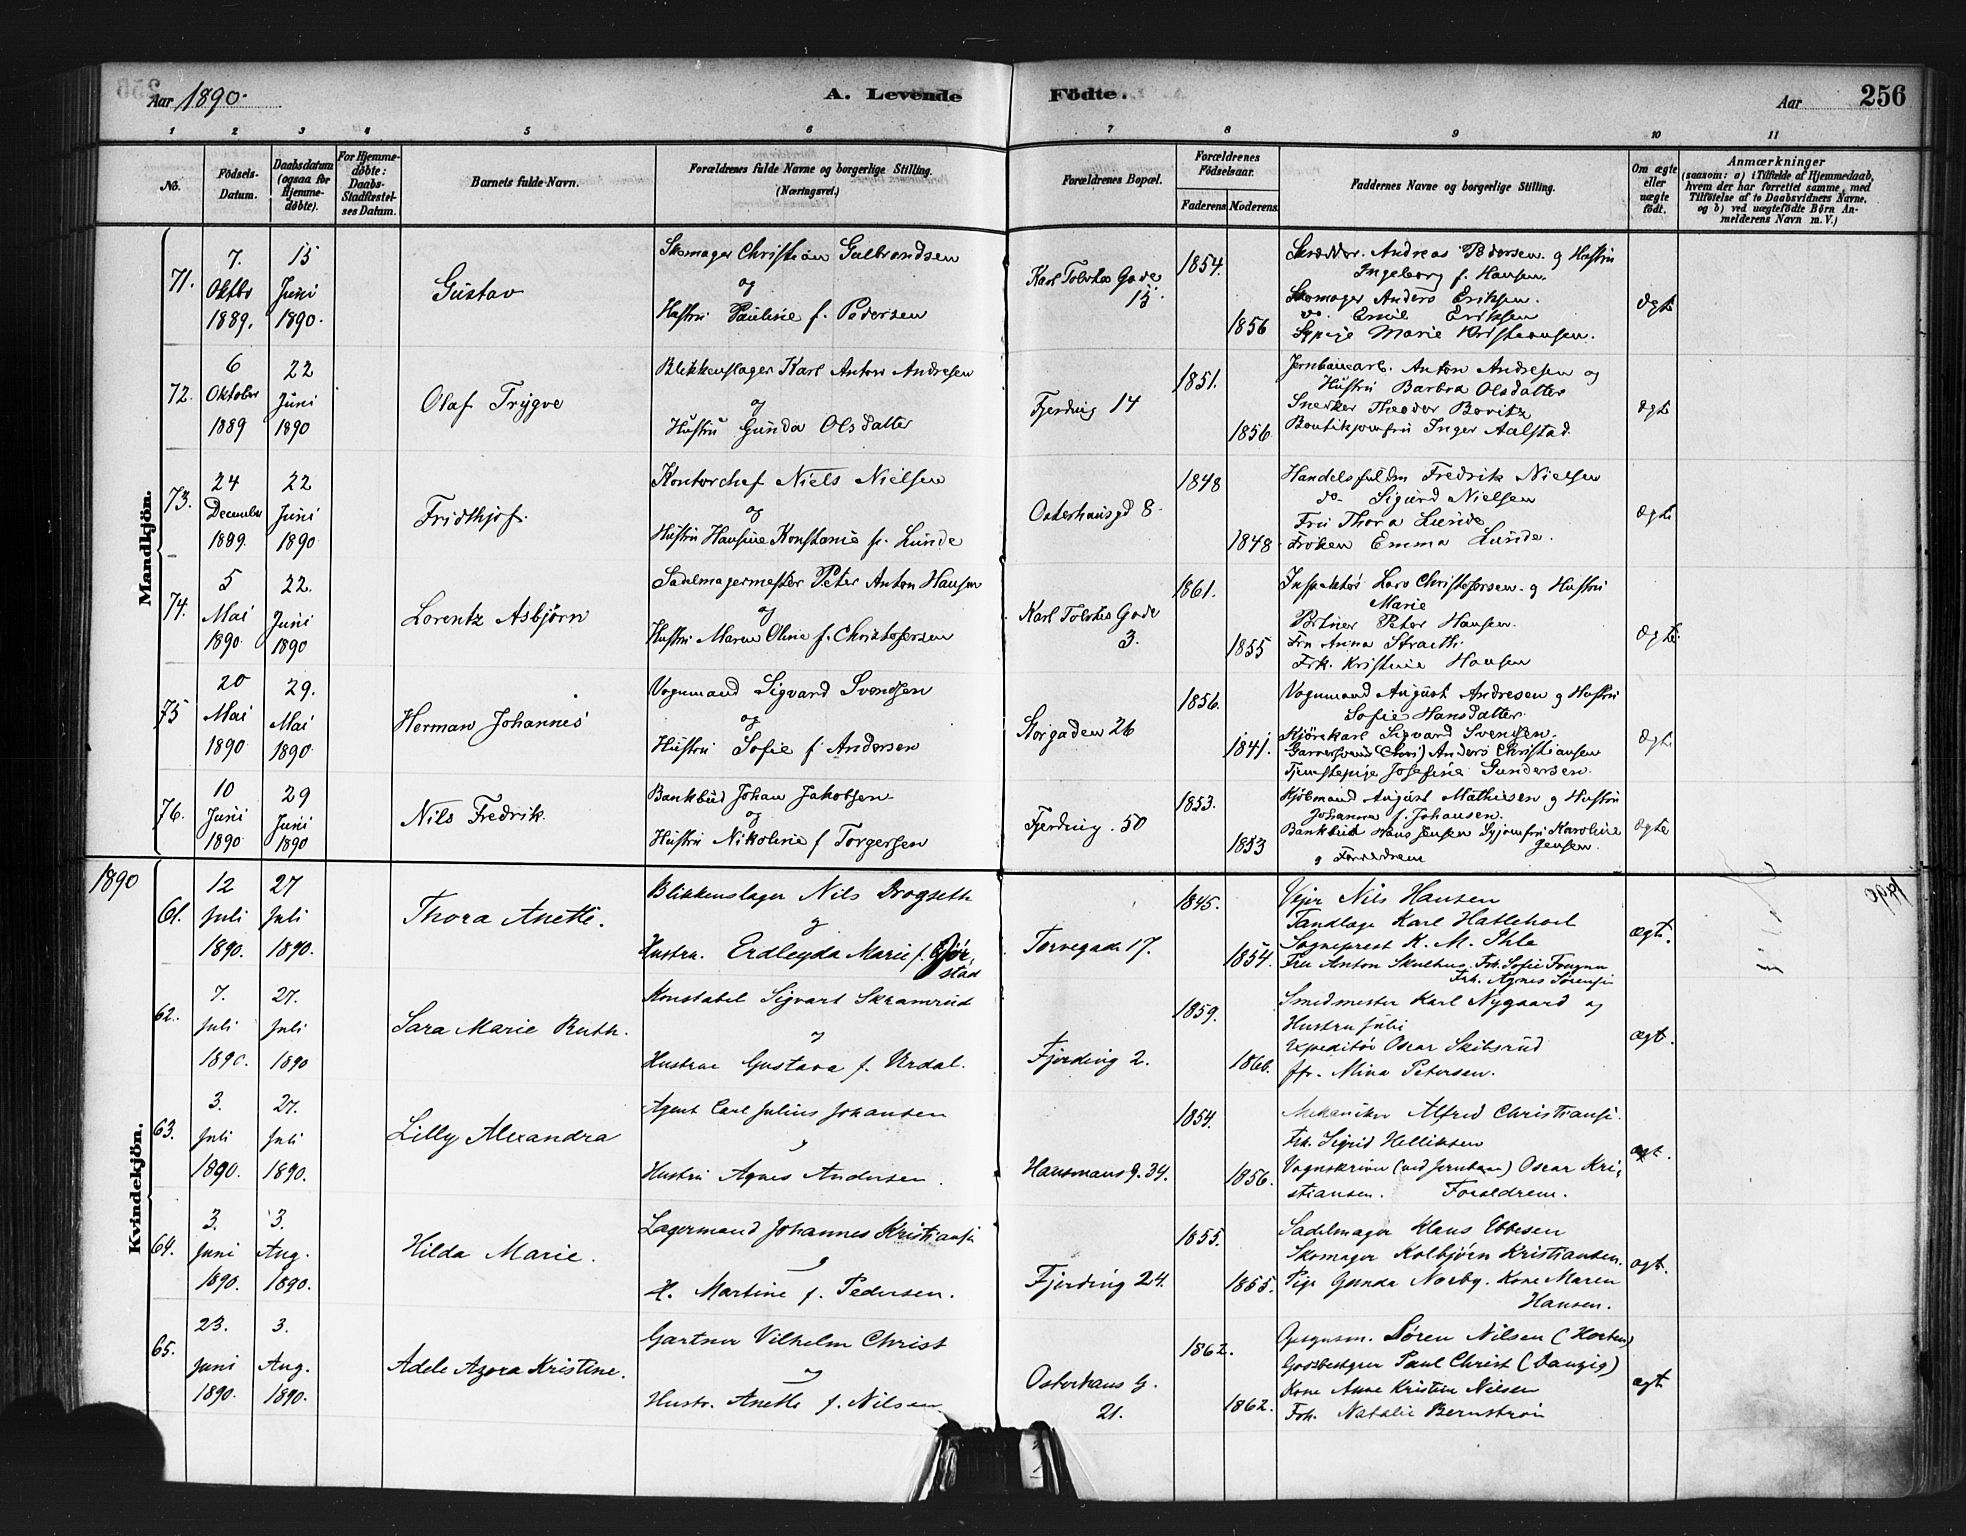 Aar 1890. A. Levende Födte. Aar 256
1 2 3 4 5 6 7 8 9 10 11
No. Födsels-Datum. Daabsdatum (ogsaa for Hjemme-döbte). For Hjemme-döbte: Daabs-Stadfæstel-ses Datum. Barnets fulde Navn. Forældrenes fulde Navne og borgerlige Stilling. (Næringsvei.) Forældrenes Bopæl. Forældrenes Födselsaar. Faderens Moderens. Faddernes Navne og borgerlige Stilling. Om ægte eller uægte födt. Anmærkninger (saasom: a) i Tilfælde af Hjemmedaab, hvem der har forrettet samme, med Tilföielse af to Daabsvidners Navne, og b) ved uægtefödte Börn An-melderens Navn m. V.)
Mandkjön.
71. 7. Oktbr 1889. 15 Juni 1890. Gustav
Skomager Christian Gulbrandsen
og
Hustru Pauline f. Pedersen
Karl Tolvtes Gade 15. 1854. 1856
Skrædder. Andreas Pedersen og Hustru
Ingeborg f. Hansen.
Skomager Anders Eriksen.
do. Emil Eriksen
Sypige Marie Kristiansen.
Ægte
72. 6 Oktober 1889 22 Juni 1890 Olaf Trygve
Blikkenslager Karl Anton Andresen
og
Hustru Gunda Olsdatter
Fjerding 14 1851. 1856
Jernbanearb. Anton Andresen og
Hustru Barbra Olsdatter
Snerker Theodor Bovitz
Inger Aalstad.
Ægte
73. 24 December 1899. 22 Juni 1890 Fridthjof.
Kontorchef Niels Nielsen
og
Hustru Hansine Konstanse f. Lunde
Osterhausgd 8. 1848 1848.
Fredrik Nielsen
do. Sigurd Nielsen
Fru Thora Lunde
Frøken Emma Lunde.
Ægte
74. 5 Mai 1890 22. Juni 1890 Lorentz Asbjørn
Sadelmagermester Peter Anton Hansen
og
Hustru Maren Oline f. Christofersen
Karl Tolvtes Gade 3. 1861. 1855
Inspektør Lars Christofersen og Hustru
Marie
Portner Peter Hansen.
Fru Anna
Frk. Kristine Hansen
Ægte
75 20 Mai 1890 29. Mai 1890 Herman Johannes
Vognmand Sigvard Svendsen
og
Hustru Sofie f. Andersen
Storgaden 26 1856. 1841.
Vognmand August Andresen og Hustru
Sofie Hansdatter.
Kjørekarl Sigvard Svensen.
Anders Christiansen
Tjenestepige Josefine Gundersen
Ægte
76. 10 Juni 1890 29 Juni 1890 Nils Fredrik.
Bankbud Johan Jakobsen
og
Hustru Nikoline f Torgersen
Fjerding. 50 1853. 1853
Kjøbmand August Mathisen og Hustru
Johanna f. Johansen.
Bankbud Hans Jensen Syjomfru Karoline
Jensen.
og Forældrene
Ægte
1890
Kvindekjön.
61. 12 Juli 1890. 27 Juli 1890. Thora Anette.
Blikkenslager Nils Drogseth
og
Hustru. Erdleyda Marie f. Gjør-
stad
Torvegade 17. 1845. 1854.
Vejer Nils Hansen
Tandlæge Karl Hatlehoel
Sogneprest K. M. Ihle
Fru Anton Frk. Sofie Fougner
Frk. Agnes Sørensen
ægt.
62. 7. Juli 1890. 27. Juli 1890 Sara Marie Ruth.
Konstabel Sigvart Skramrud
og
Hustrue Gustava f. Urdal.
Fjerding 2. 1859. 1860.
Smedmester Karl Nygaard og
Hustru Juli
Expeditør Oscar Skibsrud
Mina Petersen.
ægt.
63. 3. Juli 1890. 27. Juli 1890. Lilly Alexandra
Agent Carl Julius Johansen
og
Hustru Agnes Andersen.
Hausmans g. 34. 1854. 1856.
Mekaniker Alfred Christiansen
Frk. Sigrid Helliksen
Vognskriver (ved Jernbanen) Oscar Kri-
stiansen. Forældrene.
ægt.
64. 3. Juni 1890. 3. Aug. 1890. Hilda Marie.
Lagermand Johannes Kristiansen
og
H. Martine f. Pedersen.
Fjerding 24. 1855. 1855.
Sadelmager Klaus Ebbesen
Skomager Kolbjørn Kristiansen.
Pige Gunda Nærby. Kone Maren
Hansen.
ægt.
65. 23. Juni 1890. 3. Aug. 1890. Adele Azora Kristine.
Gartner Vilhelm Christ
og
Hustr. Anette f. Nilsen
Osterhaus G. 21. 1862. 1862.
Søren Nilsen (Horten)
Godsbestyrer Paul Christ (Danzig)
Kone Anne Kristin Nielsen
Frk. Natalie Bernstrøm
ægt